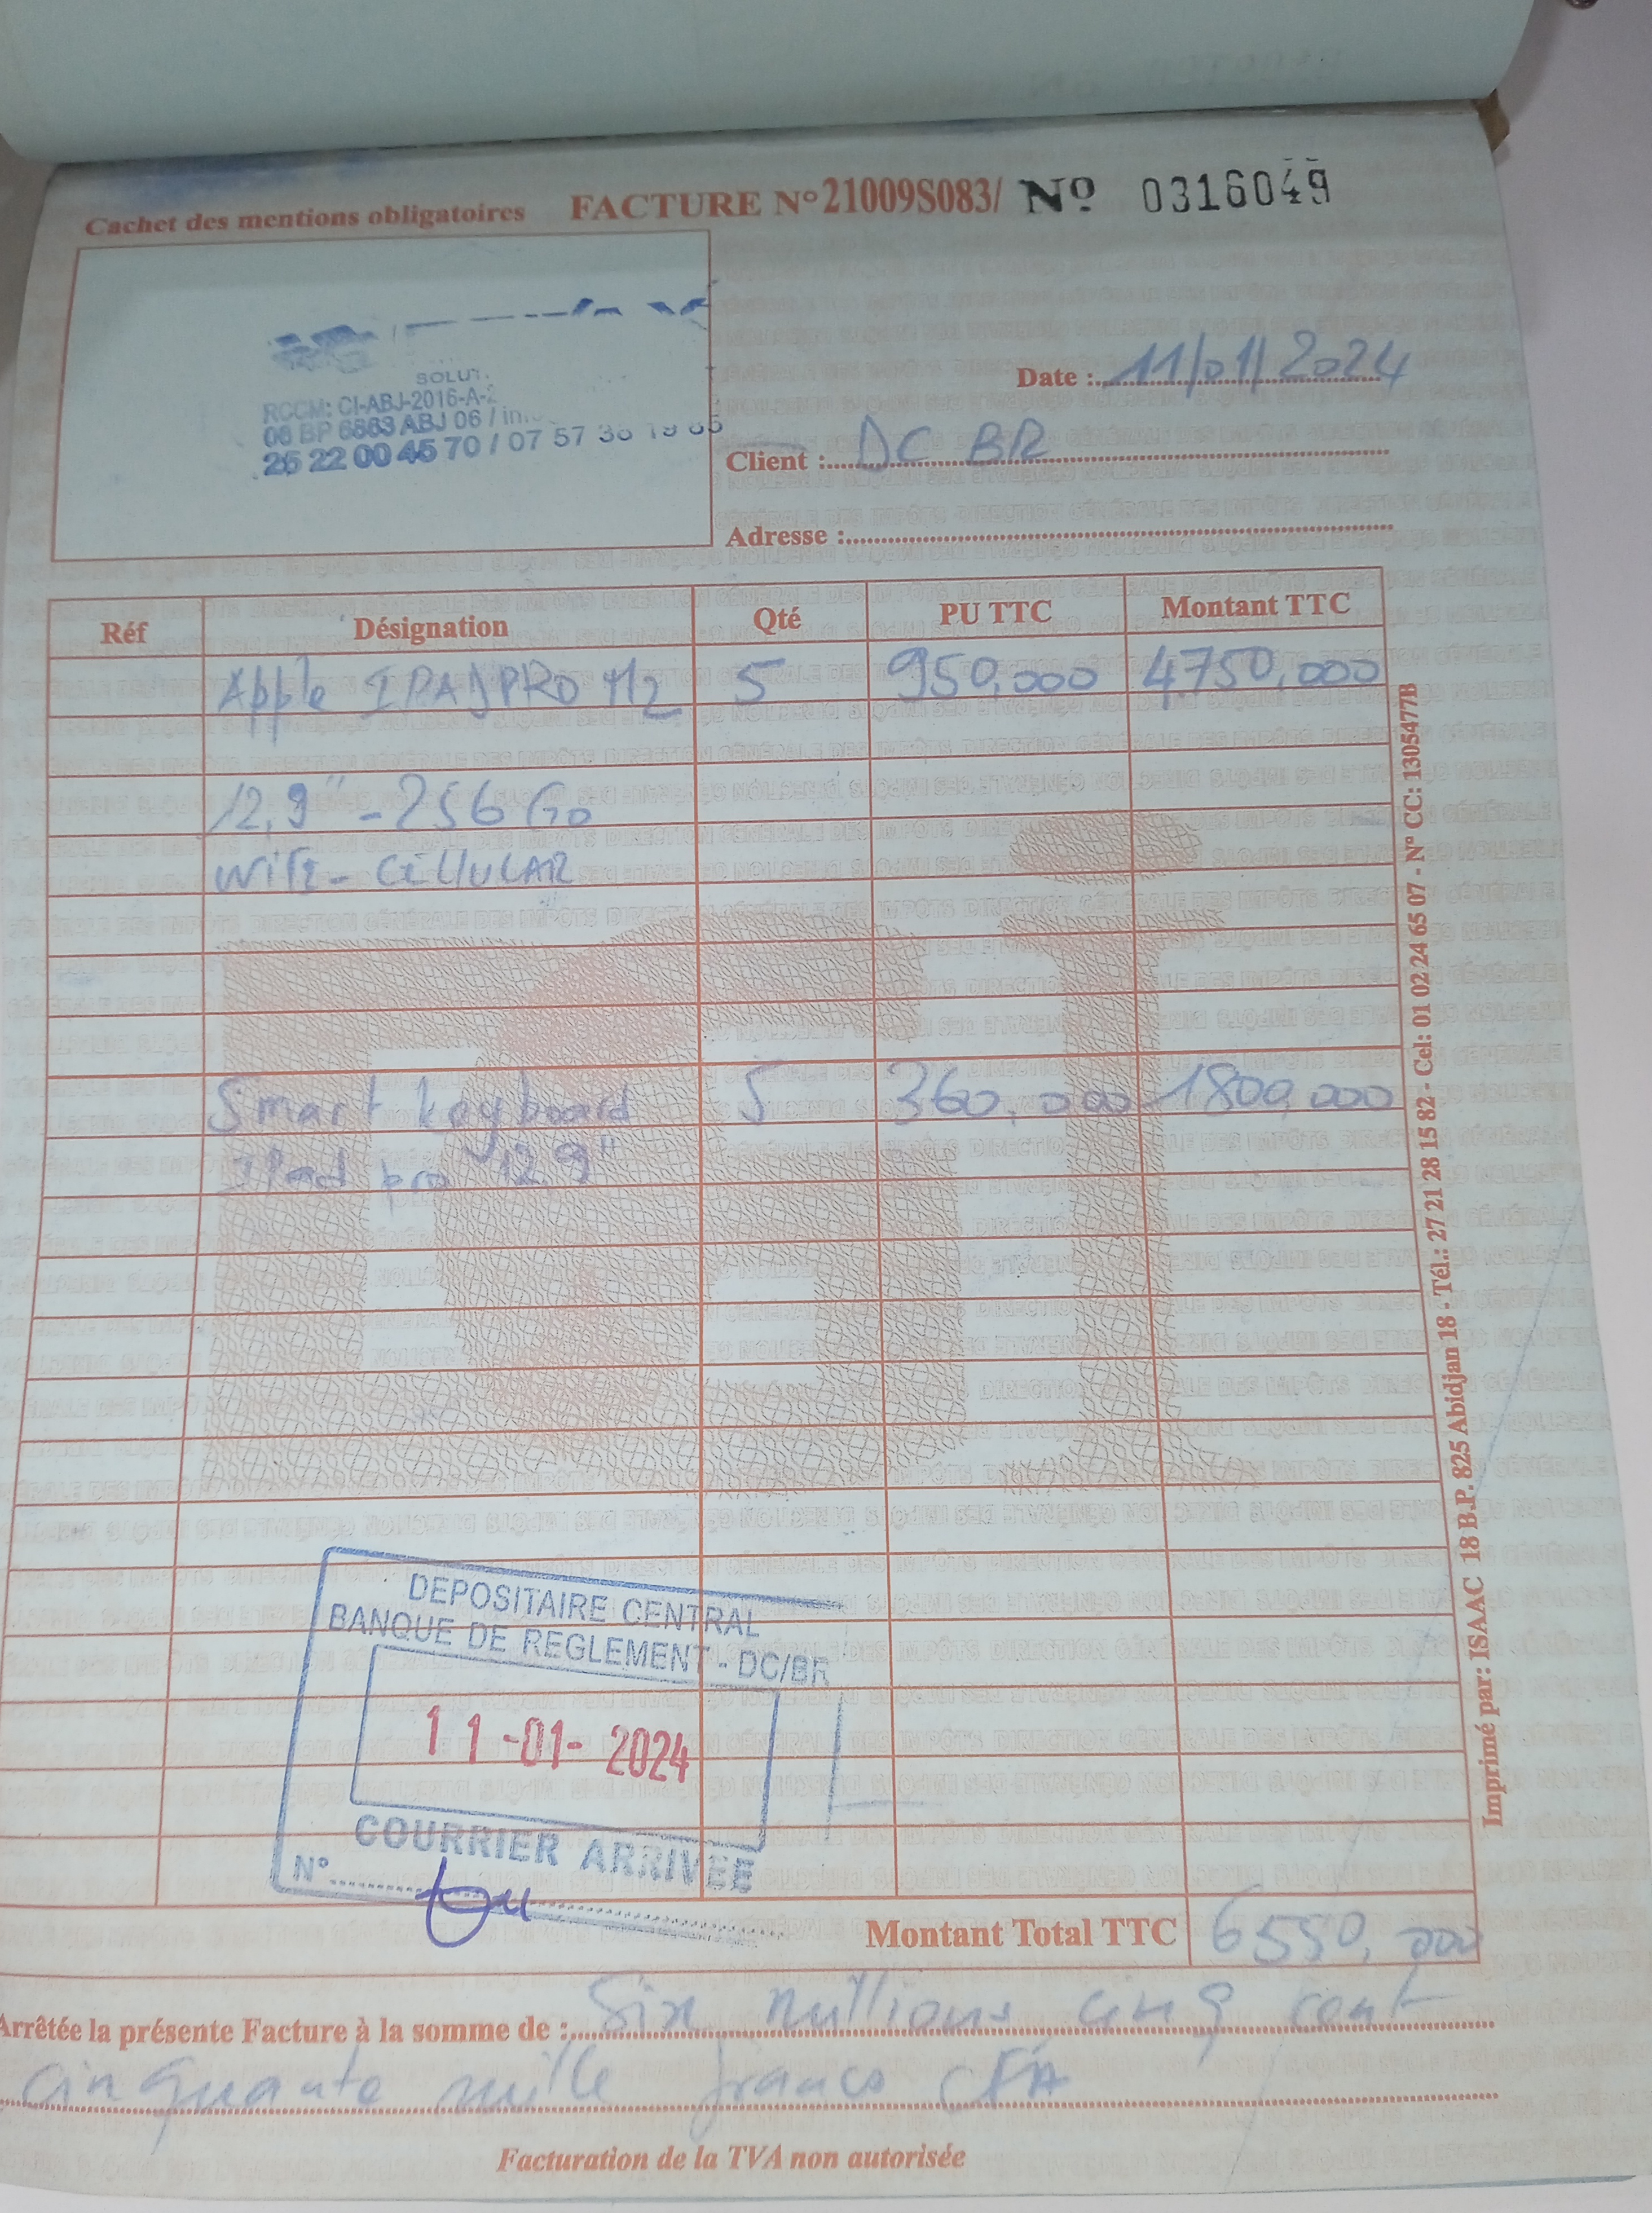 Cachet des mentions obligatoires FACTURE N°21009S083/ Nº 0316049
SOLUT
RCCM: CI-ABJ-2016-A-
06 BP 6863 ABJ 06 /
25 22 00 45 70 / 07 57 36 19 65
Date : 11/01/2024
Client : DC BR
Adresse :
Réf Désignation Qté PU TTC Montant TTC
Apple IPAD PRO M2 5 950,000 4750,000
12,9" - 256 Go
Wifi - CEllULAR
Smart keyboard 5 360,000 1800,000
IPad pro 12.9"
DEPOSITAIRE CENTRAL
BANQUE DE REGLEMENT - DC/BR
11-01-2024
COURRIER ARRIVEE
N°
Montant Total TTC 6550,000
Arrêtée la présente Facture à la somme de : Six millions cinq cent
cinquante mille francs CFA
Facturation de la TVA non autorisée
Imprimé par: ISAAC 18 B.P. 825 Abidjan 18 - Tél.: 27 21 28 15 82 - Cel: 01 02 24 65 07 - N° CC: 1305477B